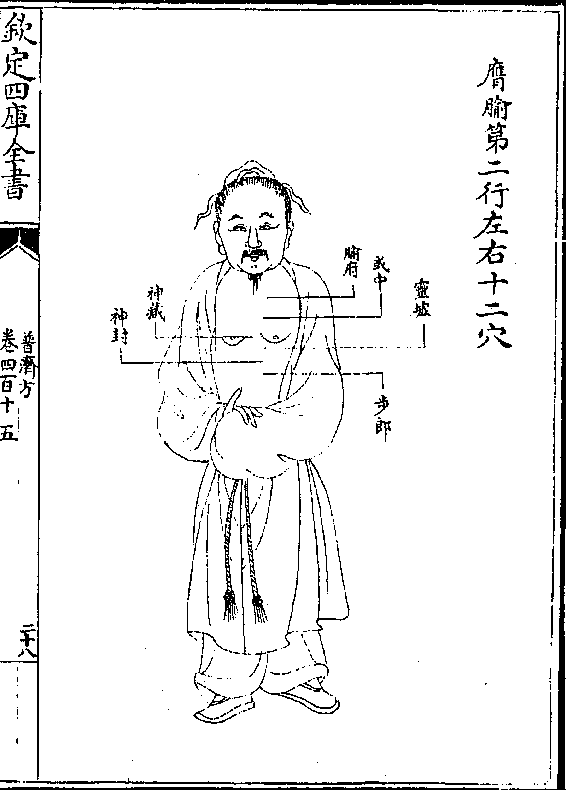 膺腧第二行左右十二穴
靈墟
或中
腧府
步郎
神藏
神封
欽定四庫全書
普濟方
卷四百十五
二十八